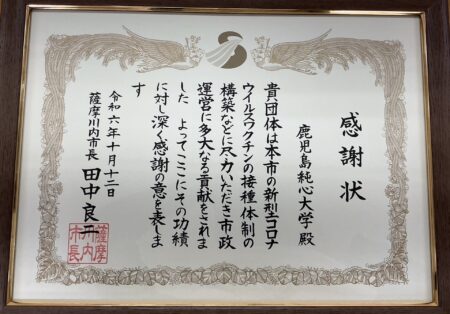 感謝状
鹿児島純心大学殿
貴団体は本市の新型コロナ
ウイルスワクチンの接種体制の
構築などに尽力いただき市政
運営に多大なる貢献をされま
した よってここにその功績
に対し深く感謝の意を表しま
す
令和六年十月十二日
薩摩川内市長 田中良二
薩摩
川内
市長